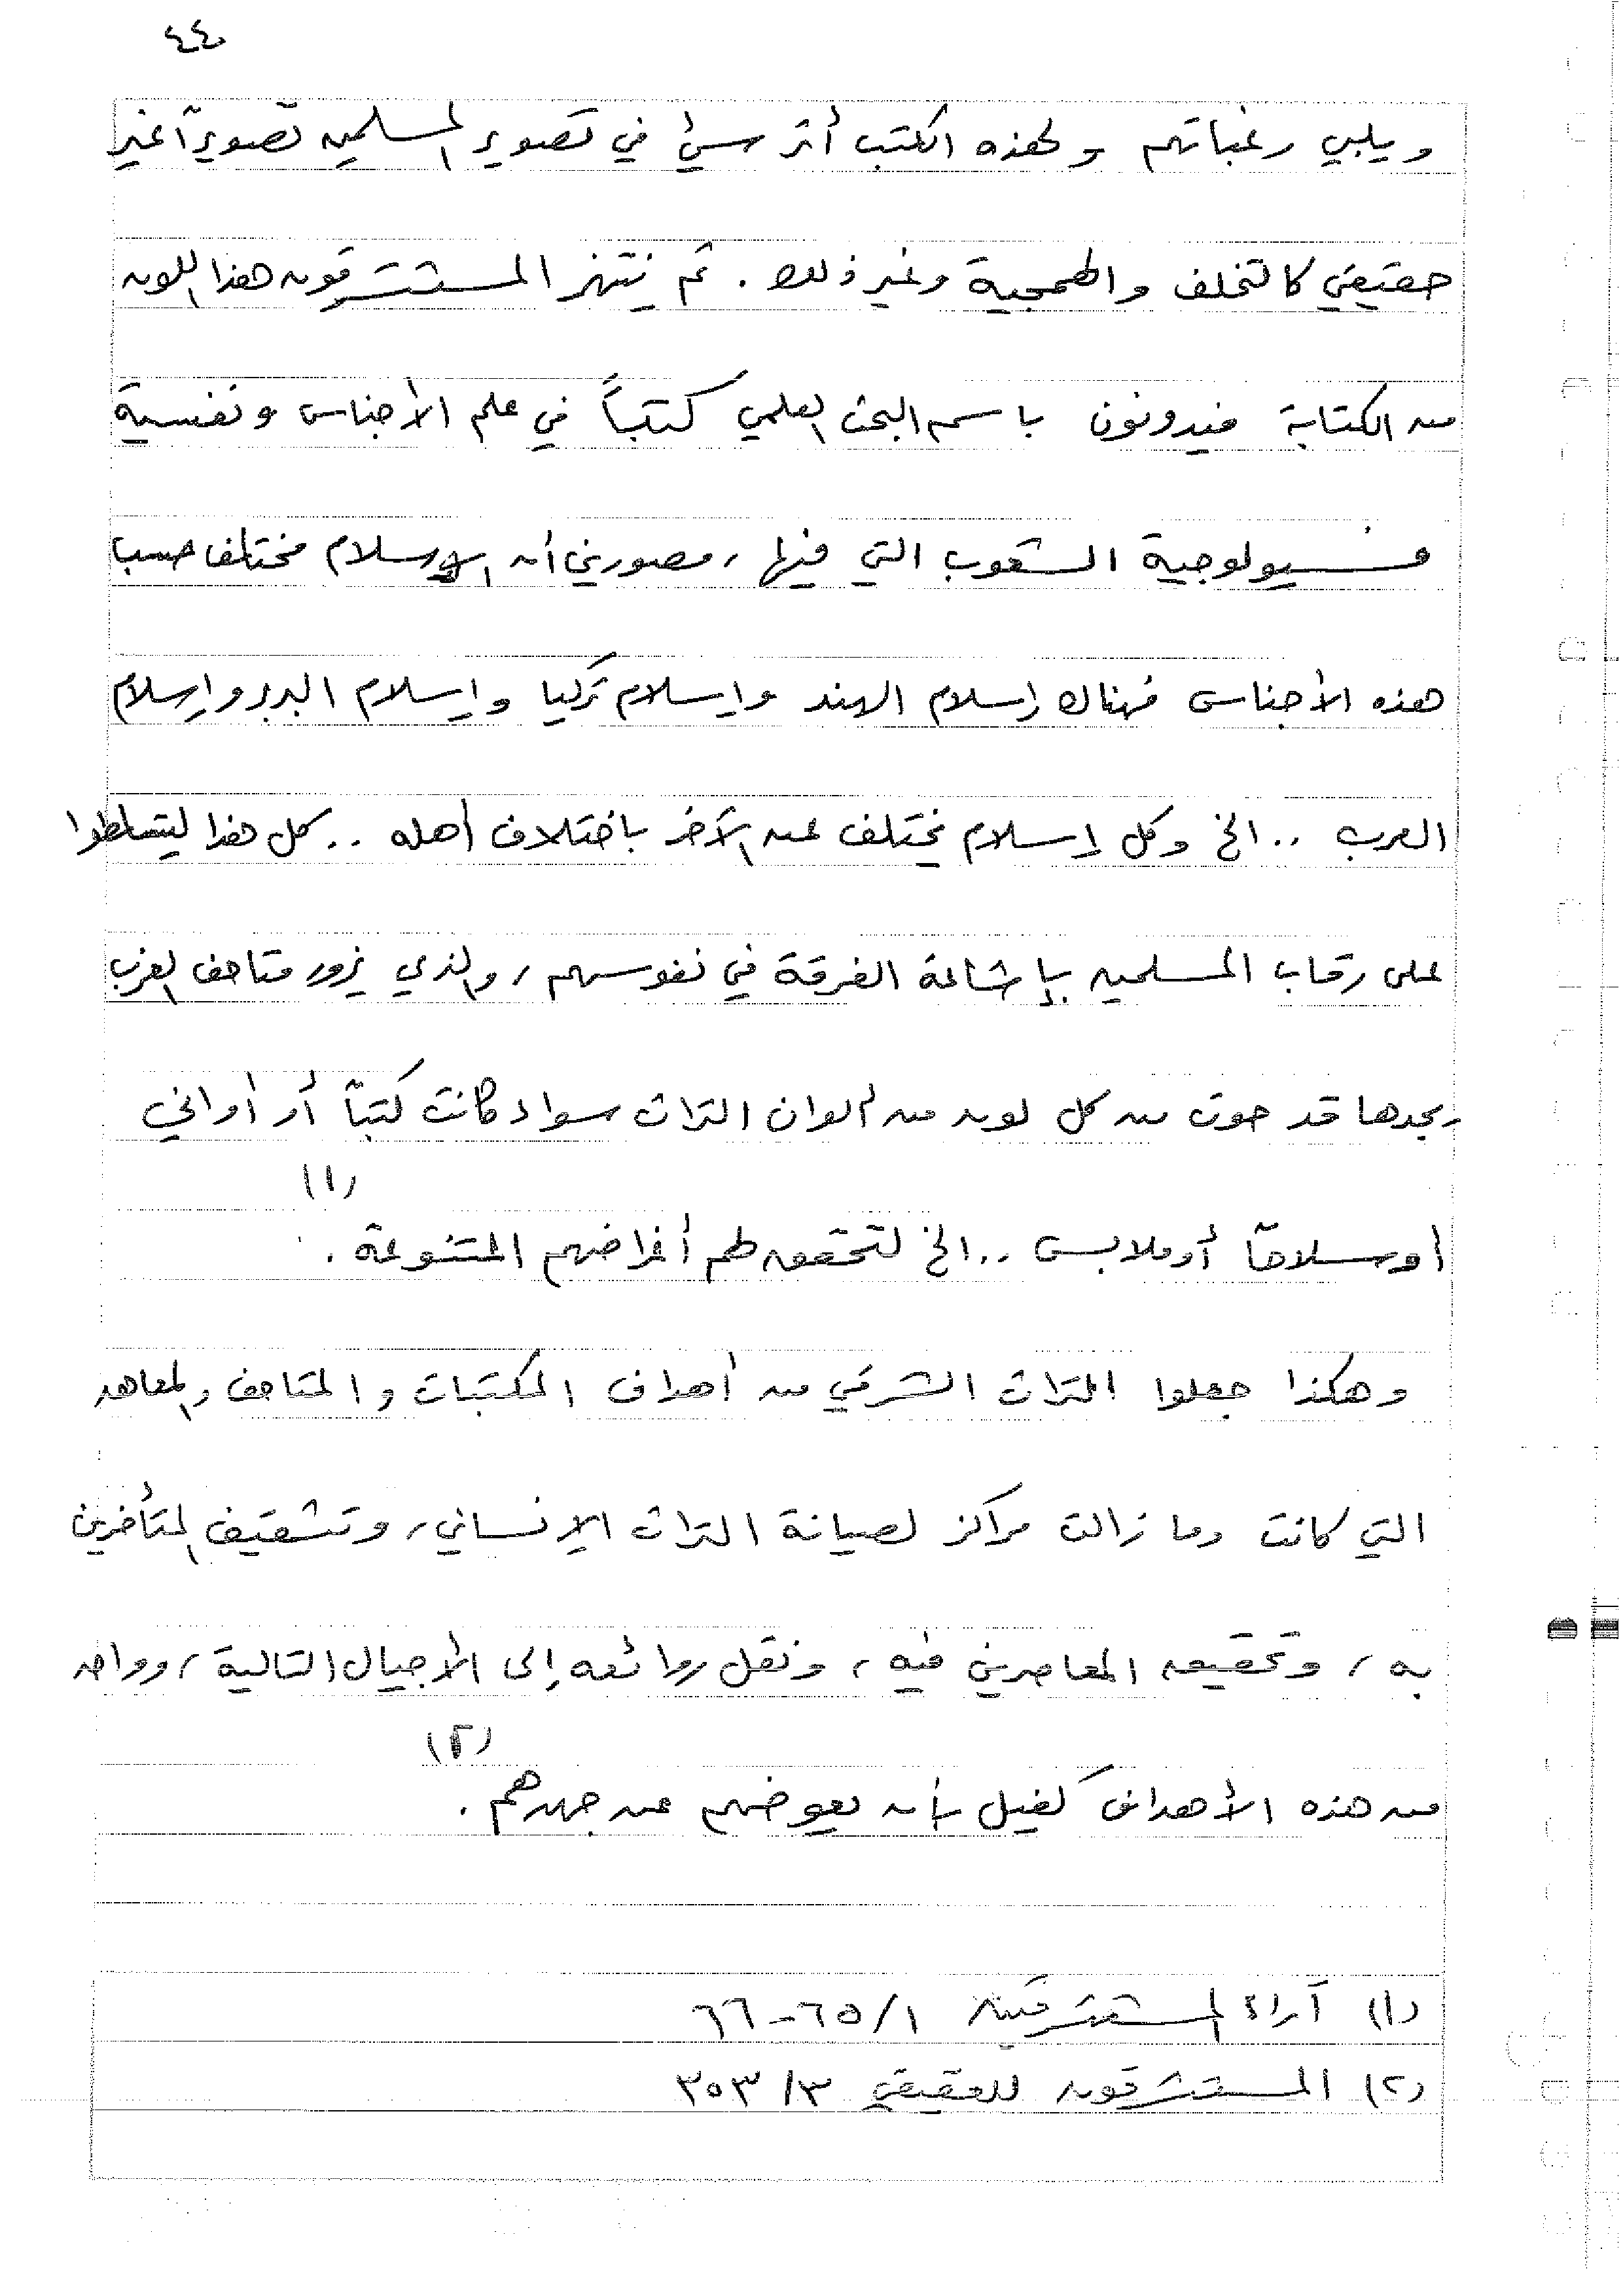 ٤٤
ويلبي رغباتهم ولهذه الكتب أثر سيئ في تصوير المسلمين تصويراً غير
حقيقي كالتخلف والهمجية وغير ذلك . ثم ينتهز المستشرقون هذا اللون
من الكتابة فيدونون باسم البحث العلمي كتباً في علم الأجناس ونفسية
فسيولوجية الشعوب التي فيها ، مصورين أن الإسلام مختلف حسب
هذه الأجناس فهناك إسلام الهند وإسلام تركيا وإسلام البربر وإسلام
العرب .. الخ وكل إسلام يختلف عن الآخر باختلاف أهله .. كل هذا ليتسلطوا
على رقاب المسلمين بإشاعة الفرقة في نفوسهم ، والذي يزور متاحف الغرب
يجدها قد حوت من كل لون من ألوان التراث سواء كانت كتباً أو أواني
أو سلاحاً أو ملابس .. الخ لتحقق لهم أغراضهم المتنوعة . (١)
وهكذا جعلوا التراث الشرقي من أهداف المكتبات والمتاحف والمعاهد
التي كانت وما زالت مراكز لصيانة التراث الإنساني ، وتثقيف المتأخرين
به ، وتحقيق المعاصرين فيه ، ونقل روائعه إلى الأجيال التالية ، وواحد
من هذه الأهداف كفيل بأن يعوضهم عن جهدهم . (٢)
(١) آراء المستشرقين ١/٦٥-٦٦
(٢) المستشرقون للعقيقي ٣/٣٥٣